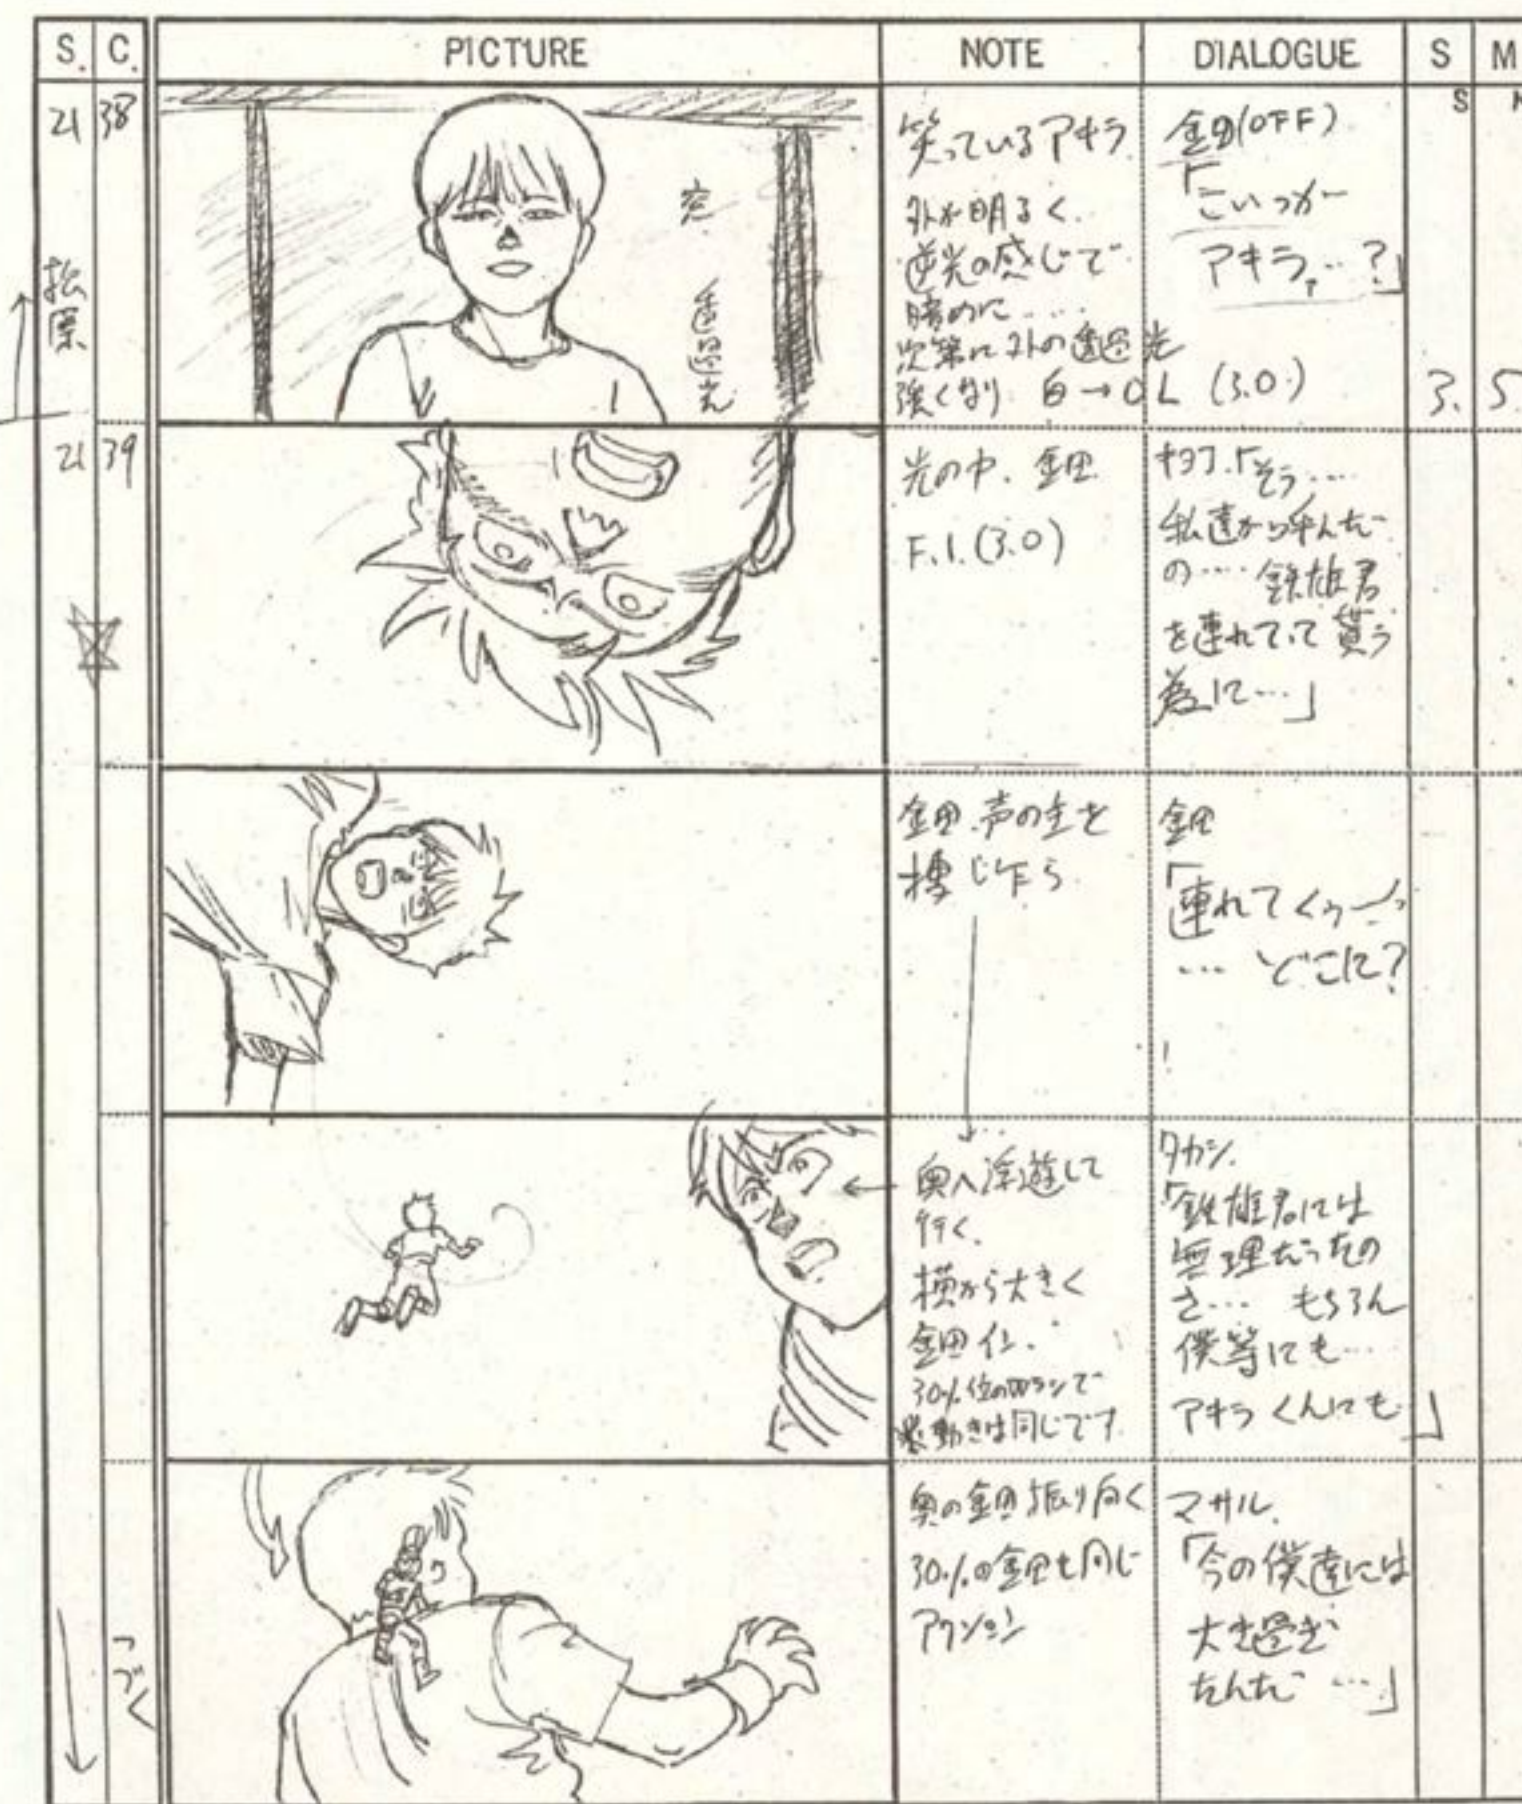 S. C. PICTURE NOTE DIALOGUE S M
S
21 38
松原
窓
透過光
笑っているアキラ
外が明るく.
逆光の感じで
暗めに....
次第に外の透過光
強くなり 白→OL (3.0)
金田(OFF)
「こいつがー
アキラ,…?」
3. 5.
21 39
光の中. 金田
F.I.(3.0)
キヨコ.「そう....
私達が呼んだ
の.... 鉄雄君
を連れてって貰う
為に…」
金田.声の主を
金田
「連れてくぅーっ
… どこに?
奥へ浮遊して
行く.
横から大きく
金田イン.
30%位のWラシで
動きは同じです.
タカシ.
「鉄雄君には
無理だったの
さ… もちろん
僕等にも…
アキラくんにも」
つづく
奥の金田振り向く
30%の金田も同じ
アクション
マサル.
「今の僕達には
大き過ぎ
たんだ…」